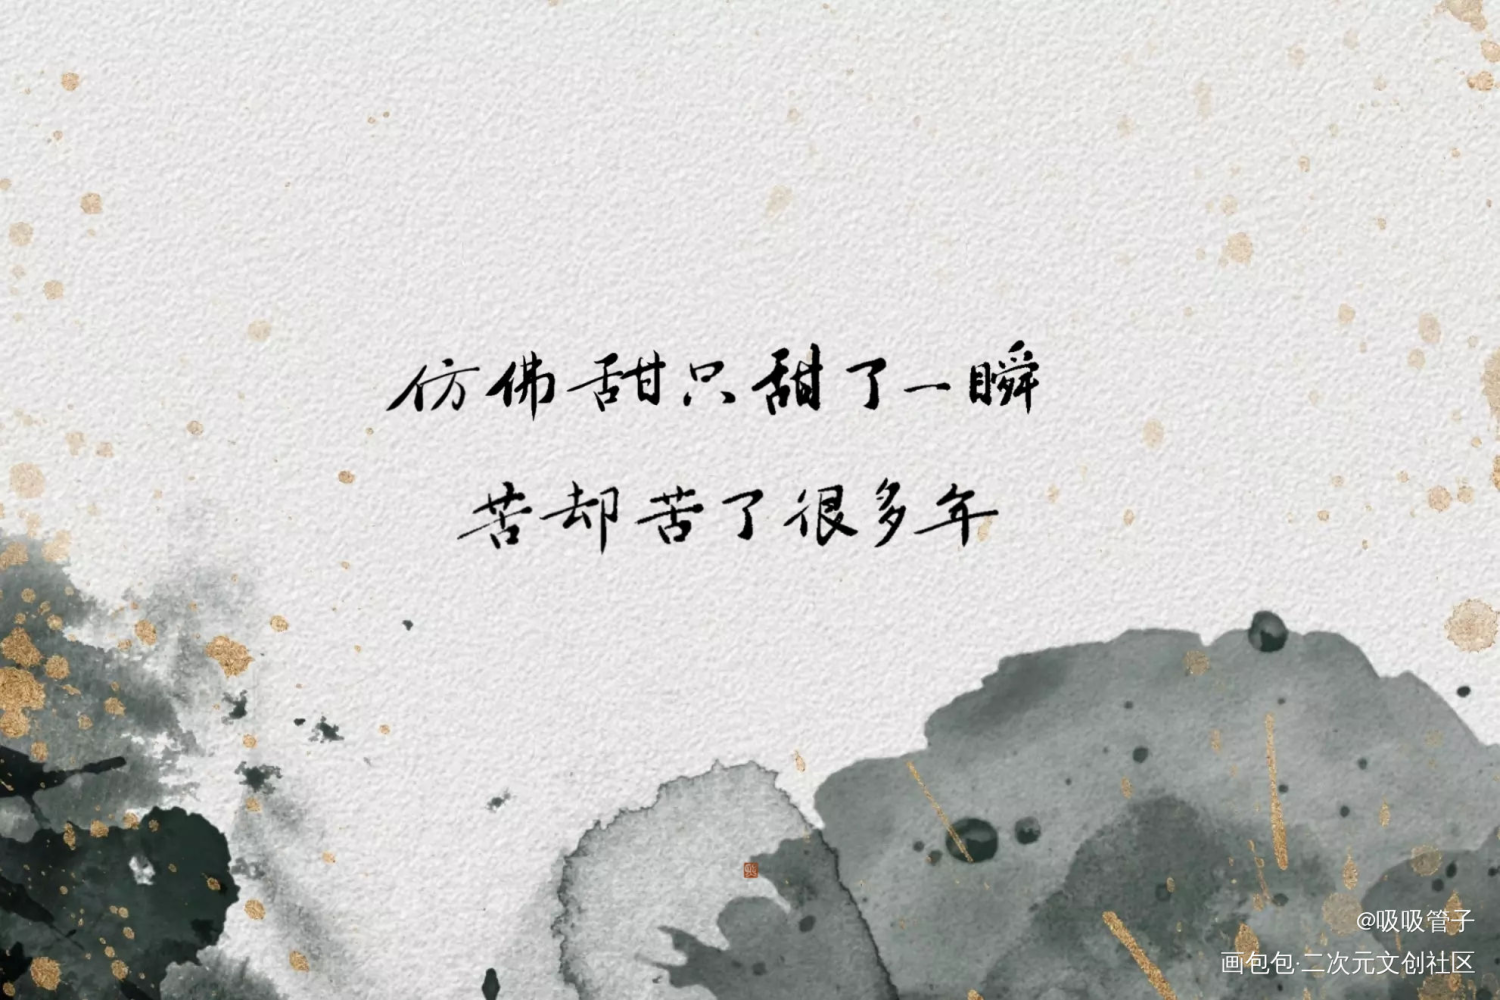 仿佛甜只甜了一瞬
苦却苦了很多年
@吸吸管子
画包包·二次元文创社区